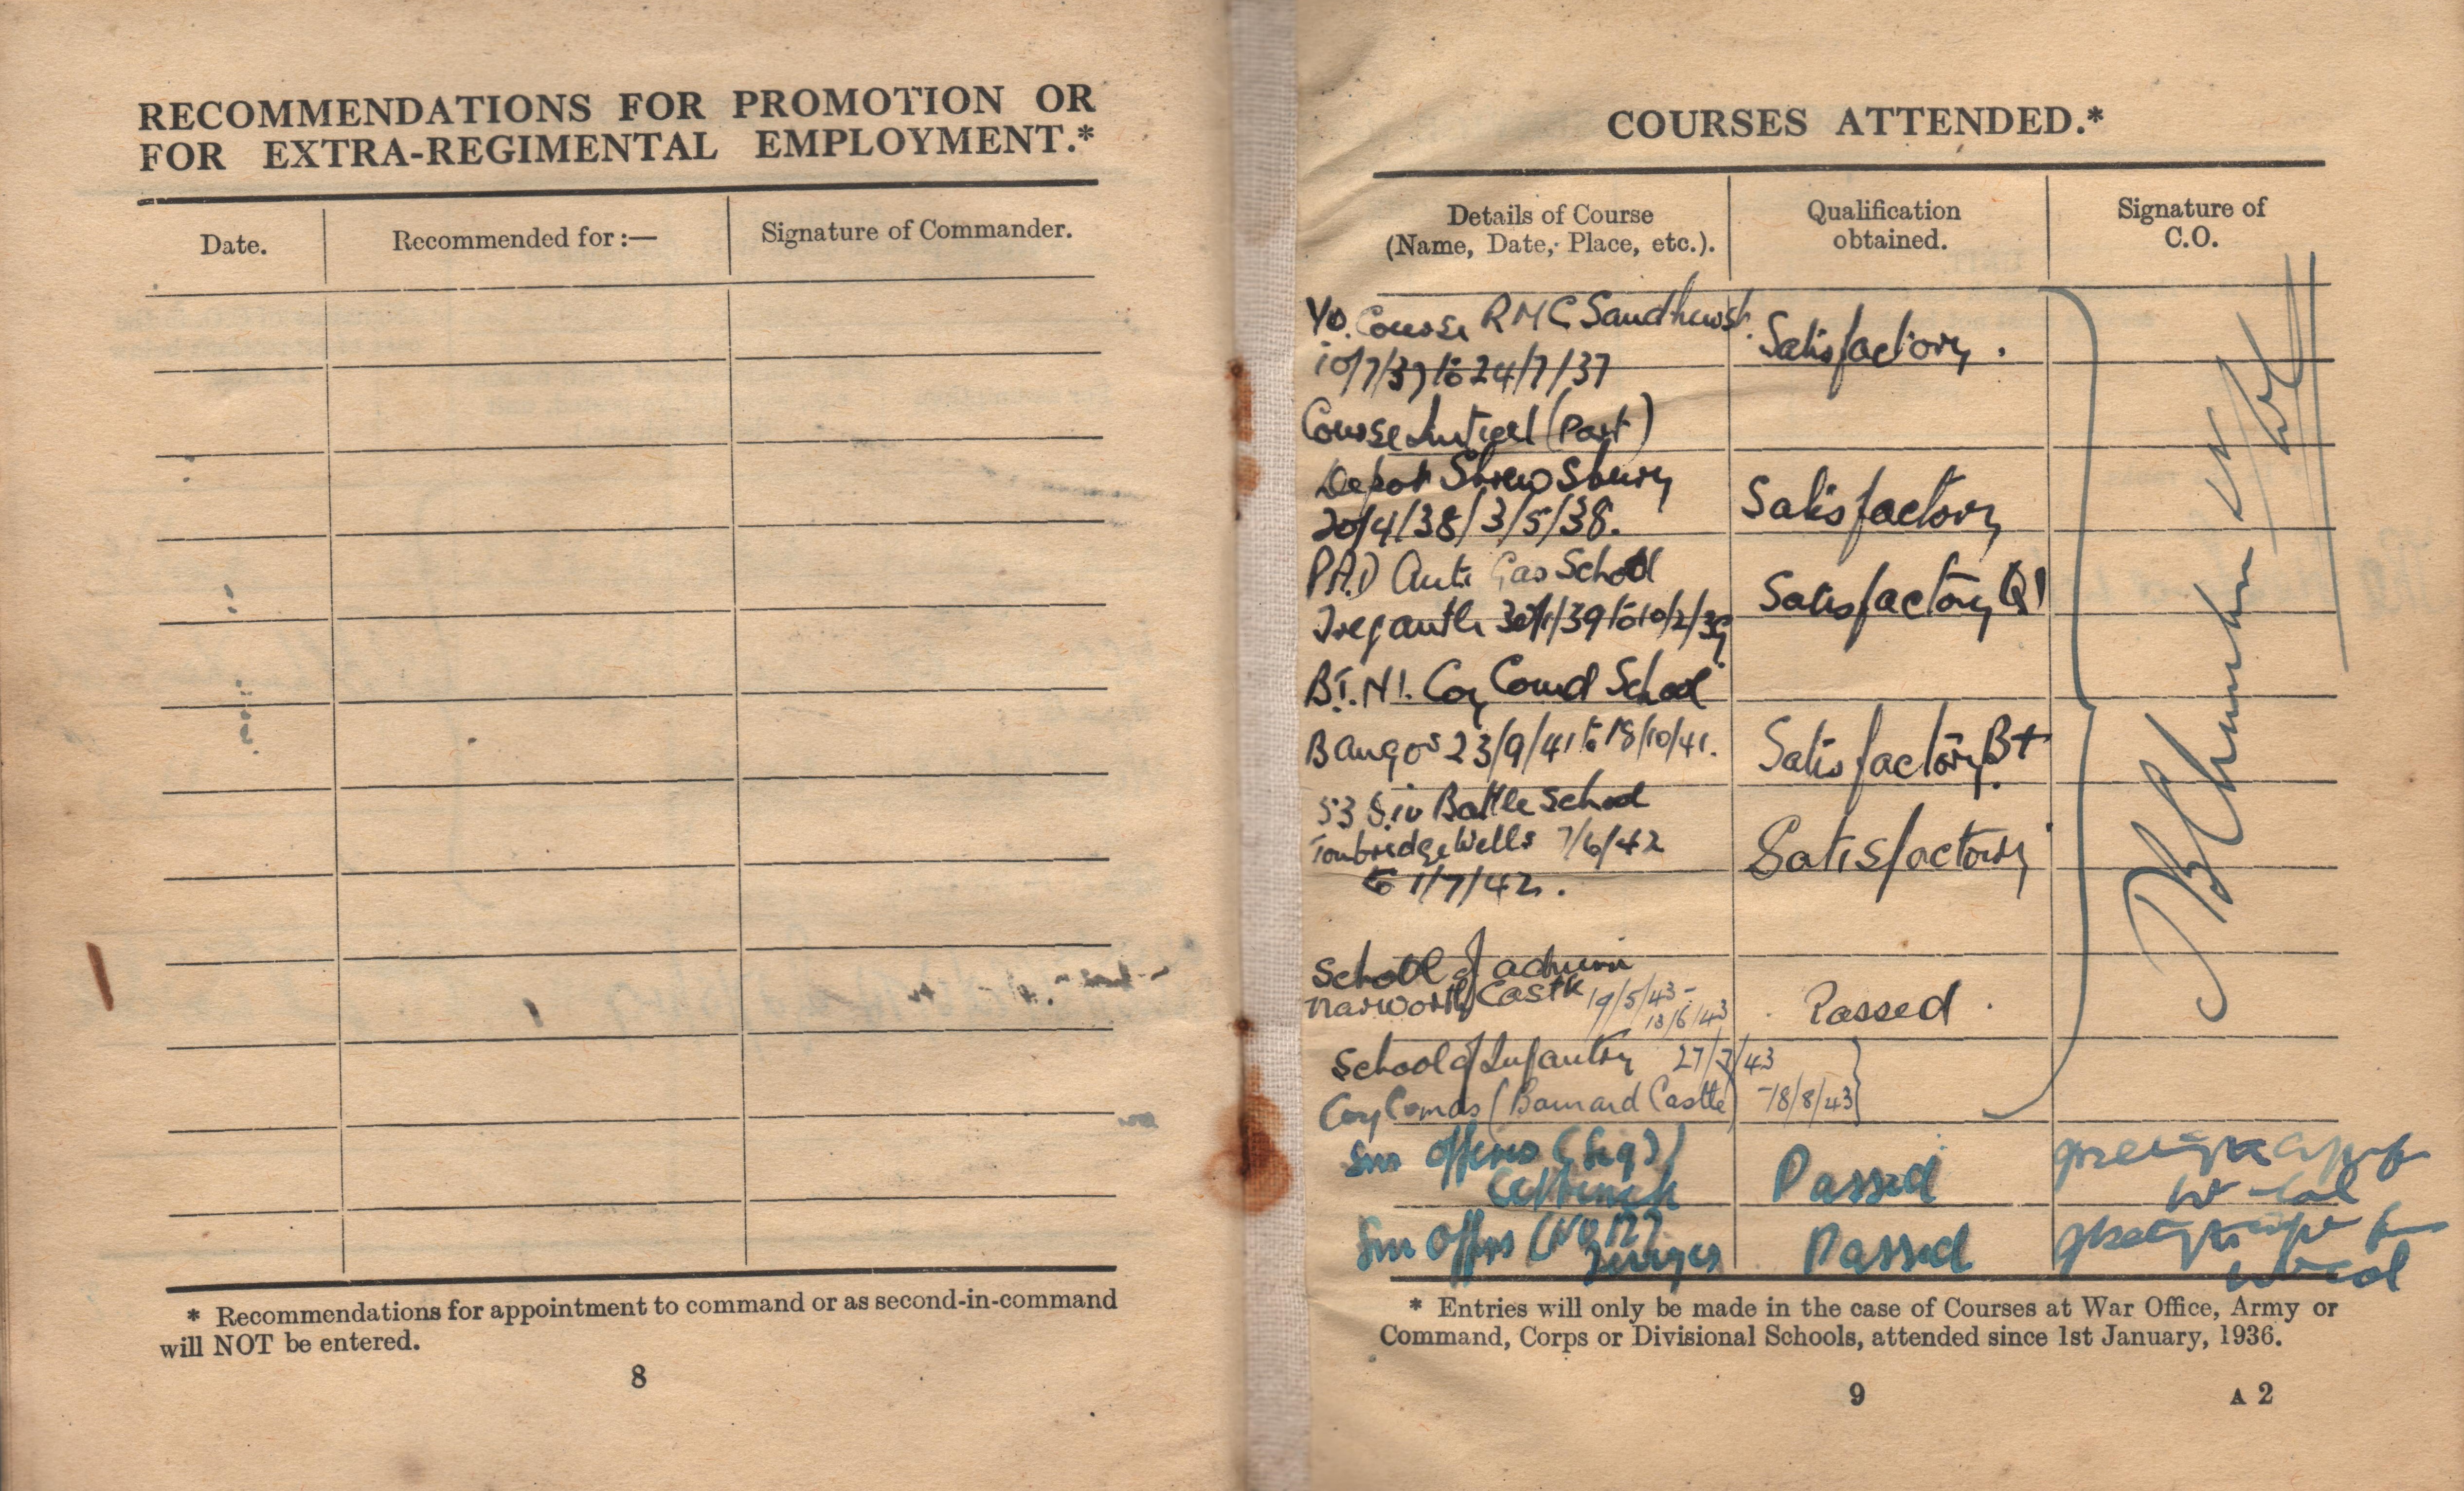 RECOMMENDATIONS FOR PROMOTION OR
FOR EXTRA-REGIMENTAL EMPLOYMENT.*
Date.
Recommended for :—
Signature of Commander.
* Recommendations for appointment to command or as second-in-command
will NOT be entered.
8
COURSES ATTENDED.*
Details of Course
(Name, Date, Place, etc.).
Qualification
obtained.
Signature of
C.O.
Yo. Course RMC Sandhurst.
10/7/37 to 24/7/37
Satisfactory.
Course (Part)
Depot Shrewsbury
20/4/38/3/5/38.
Satisfactory
PAD Anti Gas School
30/1/39 to 10/2/39
Satisfactory Q1
B.T.N.I. Coy Comd School
Bangor 23/9/41 to 18/10/41.
Satisfactory B+
53 Div Battle School
Tonbridge Wells 7/6/42
to 1/7/42.
Satisfactory
School of admin
Narworth Castle 19/5/43 -
13/6/43
Passed.
School of Infantry 27/7/43
Coy Comds (Barnard Castle) -18/8/43
Snr Officers (Sig)
Catterick
Passed
Lt Col
Snr Offrs
Passed
Lt Col
* Entries will only be made in the case of Courses at War Office, Army or
Command, Corps or Divisional Schools, attended since 1st January, 1936.
9
A 2